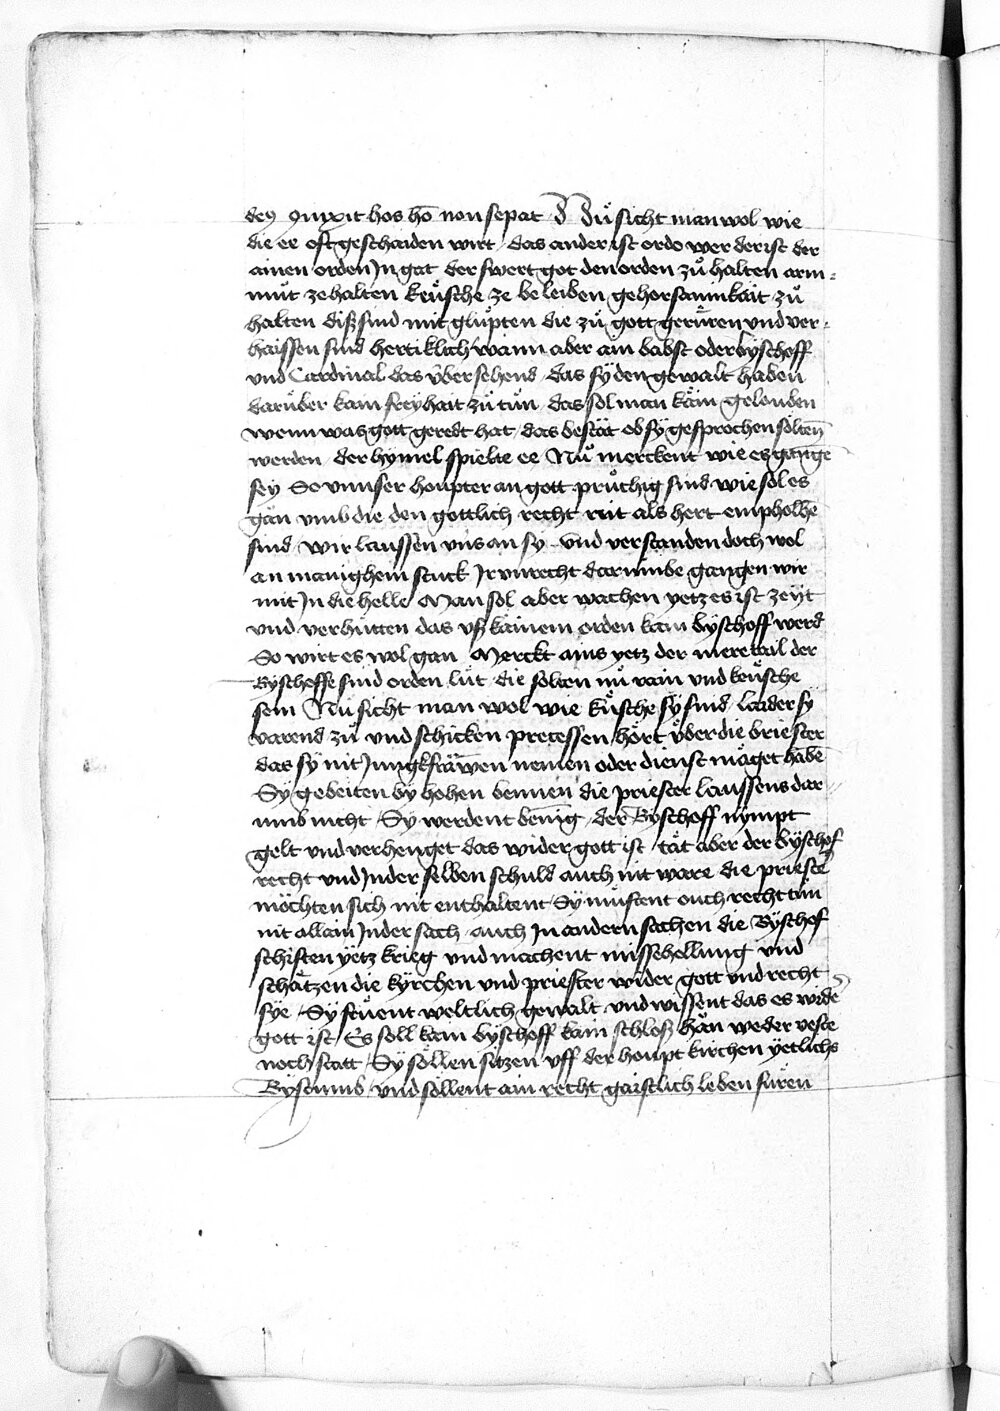 deus coniuxit hos homo non sepat Nuͦ sicht man wol wie
die ee oft geschaiden wirt das ander ist ordo wer der ist der
ainen orden Jn gat der swert got den orden zuͦ halten arm-
muͦt ze halten keuͤsche ze beleiben gehorsamikait zuͦ
halten diß sind mit gluͤpten die zuͦ gott geruͤren vnd ver-
haissen sind hertiklich wann aber ain babst oder byschoff
vnd Cardinal das v̈bersehend das sy den gewalt haben
daruͤber kain freyhait zuͦ tuͦn das sol man kain gelouben
wenn was gott geredt hat das bestät ob sy gesprochen sölten
werden der hymel spielte ee Nuͦ merckent wie es gangē
sey So vnnser houpter an gott pruͤchig sind wie sol es
gän vmb die den gottlich recht nit als hert empholhē
sind wir laussen vns an sy vnd verstanden doch wol
an manighem stuck Jr vnrecht darumbe gangen wir
mit Jn die helle Man sol aber wachen yetz es ist zeyt
vnd verhuͤtten das vß kainem orden kain byschoff werd
So wirt es wol gan Merckt ains yetz der meretail der
Byschoffe sind orden luͤt die solten nuͦ rain vnd keuͤsche
sein Nuͦ sicht man wol wie kuͤsche sy sind laider sy
varend zuͦ vnd schicken processen hört v̈ber die briester
das sy nit Jungkfräwen nemen oder dienst mäget habē
Sy gebeiten by hohen bennen die priester laussens dar-
umb nicht Sy werdent bennig der Byschoff nympt
gelt vnd verhenget das wider gott ist tät aber der byschof
recht vnd Jn der selben schuld auch nit ware die priestē
möchten sich nit enthaltent Sy muͤstent ouch recht tuͦn
nit allain Jn der sach auch Jn andern sachen die Byschof
schiften yetz krieg vnd machent missehellung vnd
schätzen die kyrchen vnd priester wider gott vnd recht
sye Sy stuͤent weltlich gewalt vnd wissent das es widē
gott ist Es soll kain byschoff kain schloß hän weder veste
noch statt Sy sollen sitzen vff der houpt kirchen yetlichs
Bystumb vnd söllent ain recht gaistlich leben fuͤren